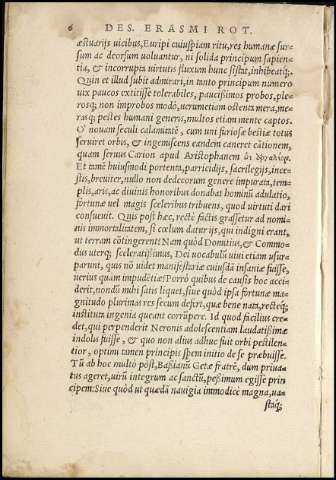 6 DES. ERASMI ROT.
æstuarijs uicibus, Euripi cuiuspiam ritu, res humanæ sur-
sum ac deorsum uoluantur, ni solida principum sapien-
tia, & incorrupta uirtutis fluxum hunc sistat, inhibeatq́;.
Quin et illud subit admirari, in tanto principum numero
uix paucos extitisse tolerabiles, paucissimos probos, ple-
rosq; non improbos modò, uerumetiam ostenta mera, me-
rasq; pestes humani generis, multos etiam mente captos.
O' nouam seculi calamitatē, cum uni furiosæ bestiæ totus
seruiret orbis, & ingemiscens eandem caneret cātionem,
quam seruus Carion apud Aristophanem
Et tamē huiusmodi portenta, parricidijs, sacrilegijs, ince-
stis, breuiter, nullo non dedecorum genere impurata, tem-
plis, aris, ac diuinis honoribus donabat hominū adulatio,
fortunæ uel magis sceleribus tribuens, quod uirtuti dari
consueuit. Quis post hæc, rectè factis grassetur ad nomi-
nis immortalitatem, si cœlum datur ijs, qui indigni erant,
ut terram cōtingerent? Nam quod Domitius, & Commo-
dus uterq; sceleratissimus, Dei uocabulū uiui etiam usur-
parunt, quis nō uidet manifestariæ cuiusdā insaniæ fuisse,
uerius quam impudētiæ? Porrò quibus de causis hoc acci-
derit, nondū mihi satis liquet, siue quòd ipsa fortunæ ma-
gnitudo plurimas res secum deferr, quæ bene nam, rectéq́;
institutum ingenia queant corrūpere. Id quod facilius cre-
det, qui perpenderit Neronis adolescentiam laudatissimæ
indolis fuisse, & quo non alius adhuc fuit orbi pestilen-
tior, optimi tamen principis spem initio de se præbuisse.
Tū ab hoc multo pòst, Baßianū Getæ fratrē, dum priua-
tus ageret, uirū integrum ac sanctū, peßimum egisse prin
cipem: Siue quòd ut quædā nauigia immodicè magna, ua-
staq́;